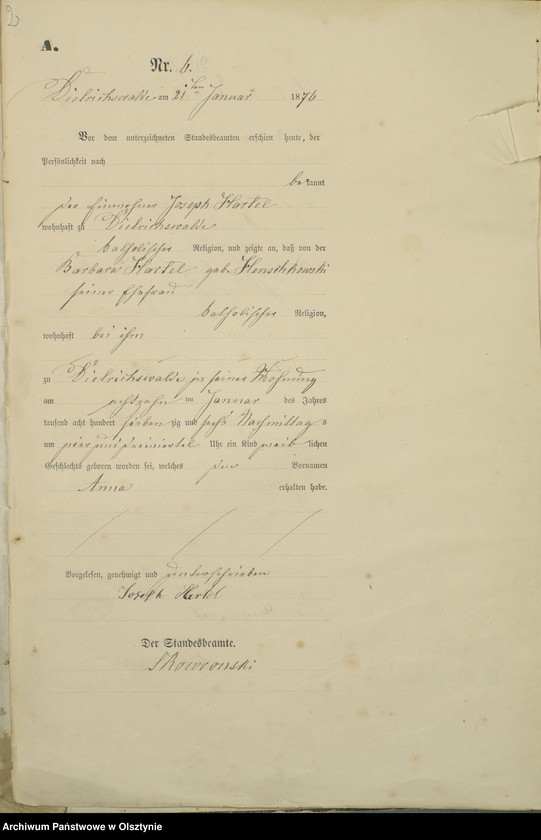 2
A.
Nr. 6.
Dietrichswalde am 21ten Januar 1876
Vor dem unterzeichneten Standesbeamten erschien heute, der
Persönlichkeit nach
bekannt
der Einwohner Joseph Hartel
wohnhaft zu Dietrichswalde
katholischer Religion, und zeigte an, daß von der
Barbara Hartel geb. Henschkowski
seiner Ehefrau
katholischer Religion,
wohnhaft bei ihm
zu Dietrichswalde in seiner Wohnung
am achtzehn ten Januar des Jahres
tausend acht hundert sieben zig und sechs Nachmittag s
um vier und dreiviertel Uhr ein Kind weib lichen
Geschlechts geboren worden sei, welches den Vornamen
Anna erhalten habe.
Vorgelesen, genehmigt und unterschrieben
Joseph Hertel
Der Standesbeamte.
Skowronski
Archiwum Państwowe w Olsztynie